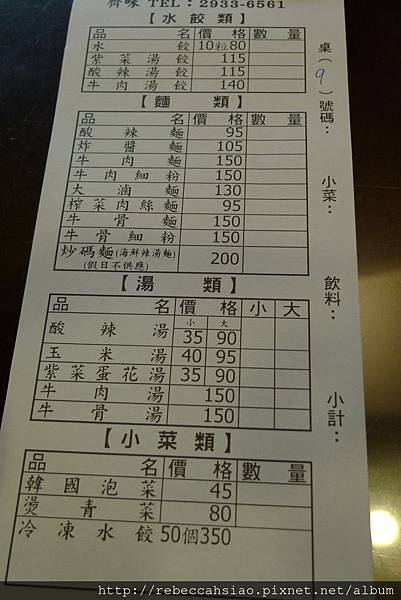 齊味 TEL：2933-6561
【水餃類】
品名 價格 數量
水餃 10粒80
紫菜湯餃 115
酸辣湯餃 115
牛肉湯餃 140
【麵類】
品名 價格 數量
酸辣麵 95
炸醬麵 105
牛肉麵 150
牛肉細粉 150
大滷麵 130
榨菜肉絲麵 95
牛骨麵 150
牛骨細粉 150
炒碼麵(海鮮辣湯麵) 200
(假日不供應)
【湯類】
品名 價格 小 大
小 大
酸辣湯 35 90
玉米湯 40 95
紫菜蛋花湯 35 90
牛肉湯 150
牛骨湯 150
【小菜類】
品名 價格 數量
韓國泡菜 45
燙青菜 80
冷凍水餃 50個350
桌(9)號碼：
小菜：
飲料：
小計：
http://rebeccahsiao.pixnet.net/album